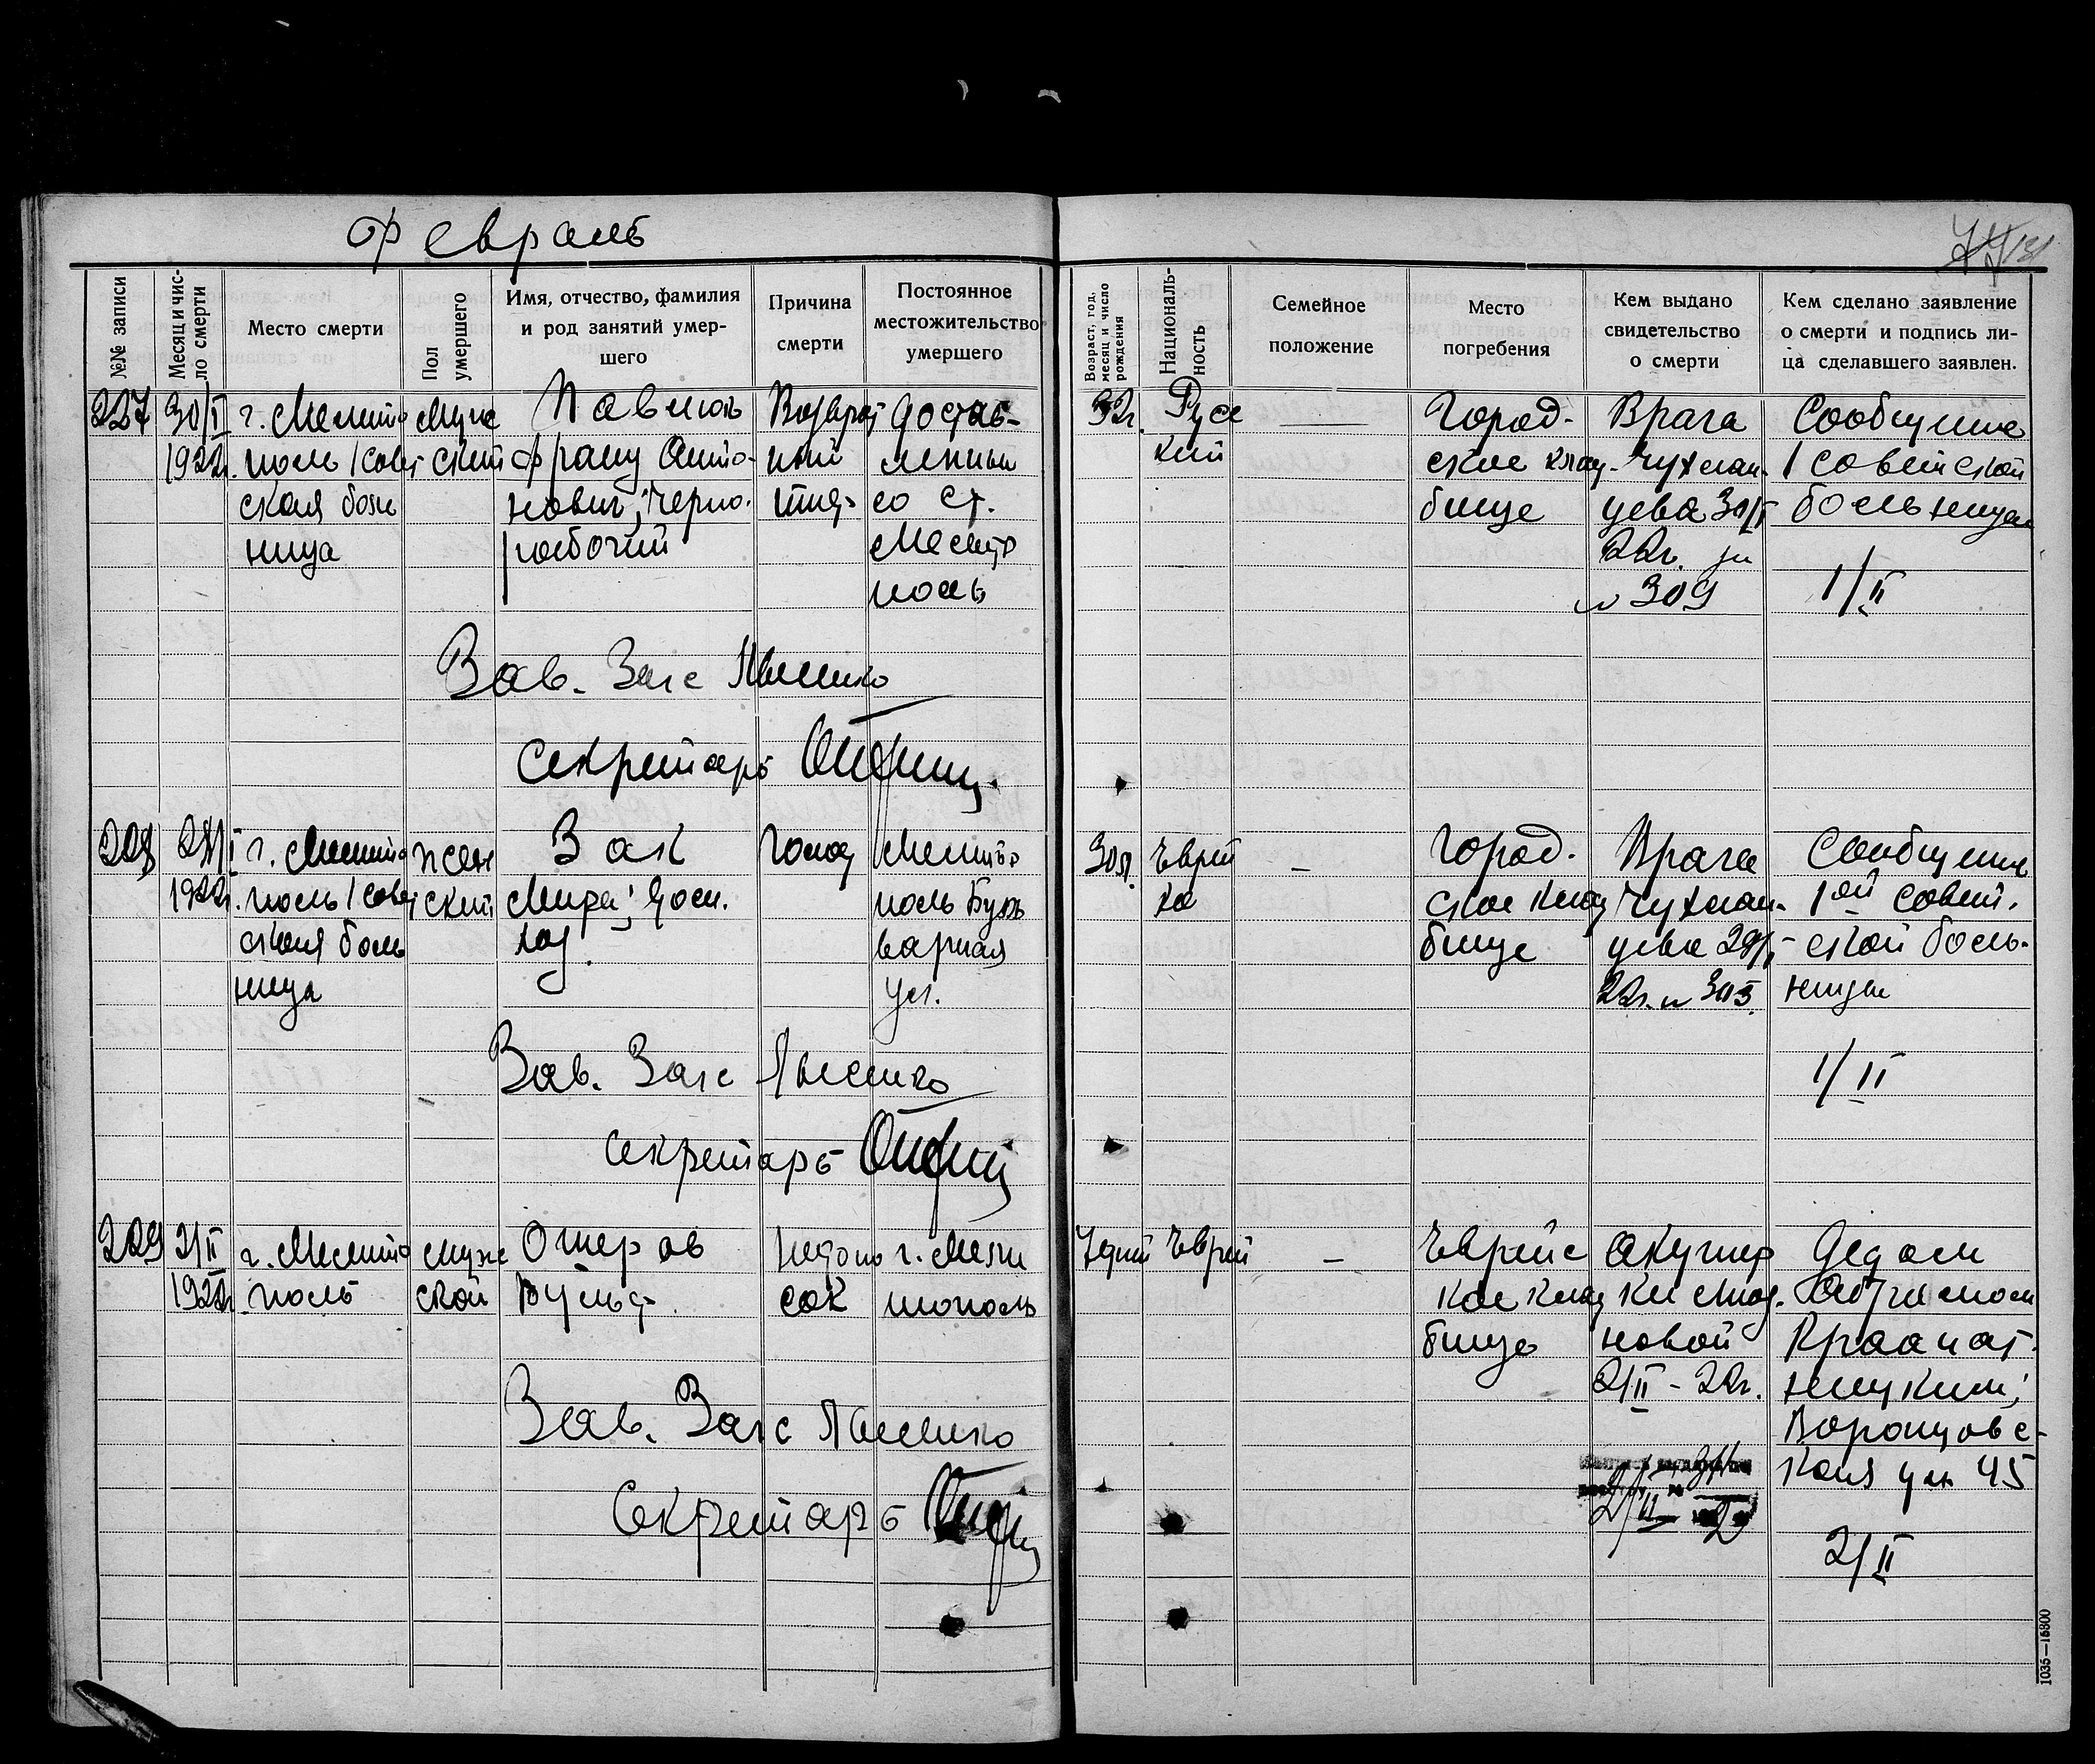 Февраль
131
№№ записи
Месяц и чис-
ло смерти
Место смерти
Пол
умершего
Имя, отчество, фамилия
и род занятий умер-
шего
Причина
смерти
Постоянное
местожительство
умершего
Возраст, год,
месяц и число
рождения
Националь-
ность
Семейное
положение
Место
погребения
Кем выдано
свидетельство
о смерти
Кем сделано заявление
о смерти и подпись ли-
ца сделавшего заявлен.
227
30/I
1922г.
г. Мелито
поль 1 совет
ская боль
ница
муж
ский
Павлюк
Франц Анто-
нович; черно-
рабочий
Возврат
ный
тиф
Достав-
ленный
со ст.
Мелито
поль
32г.
Русс
кий
Город-
ское клад-
бище
Врача
Чухман-
цева 30/I
22г. за
№ 309
Сообщение
1 советской
больницы
1/II
Зав. Загс Лысенко
Секретарь
228
1922г.
г. Мелито
поль 1 совет
ская боль
ница
жен
ский
Зак
Мира; дом.
хоз.
Голод
Мелито
поль Буль
варная
ул.
30л.
Еврей
ка
–
Город-
ское клад
бище
Врача
Чухман-
цева 29/I
22г. №
Сообщение
1ой совет-
ской боль-
ницы
1/II
Зав. Загс Лысенко
Секретарь
229
2/II
1922г.
г. Мелито
поль
муж
ской
Ошеров
Вульф
Недоно
сок
г. Мели
тополь
7 дней
Еврей
–
Еврейс
кое клад
бище
Акушер
ки
новой
2/II - 22г.
2/II
Дедом
Абрамом
Воронцовс-
кая ул 45
2/II
Зав. Загс Лысенко
Секретарь
1035—15800